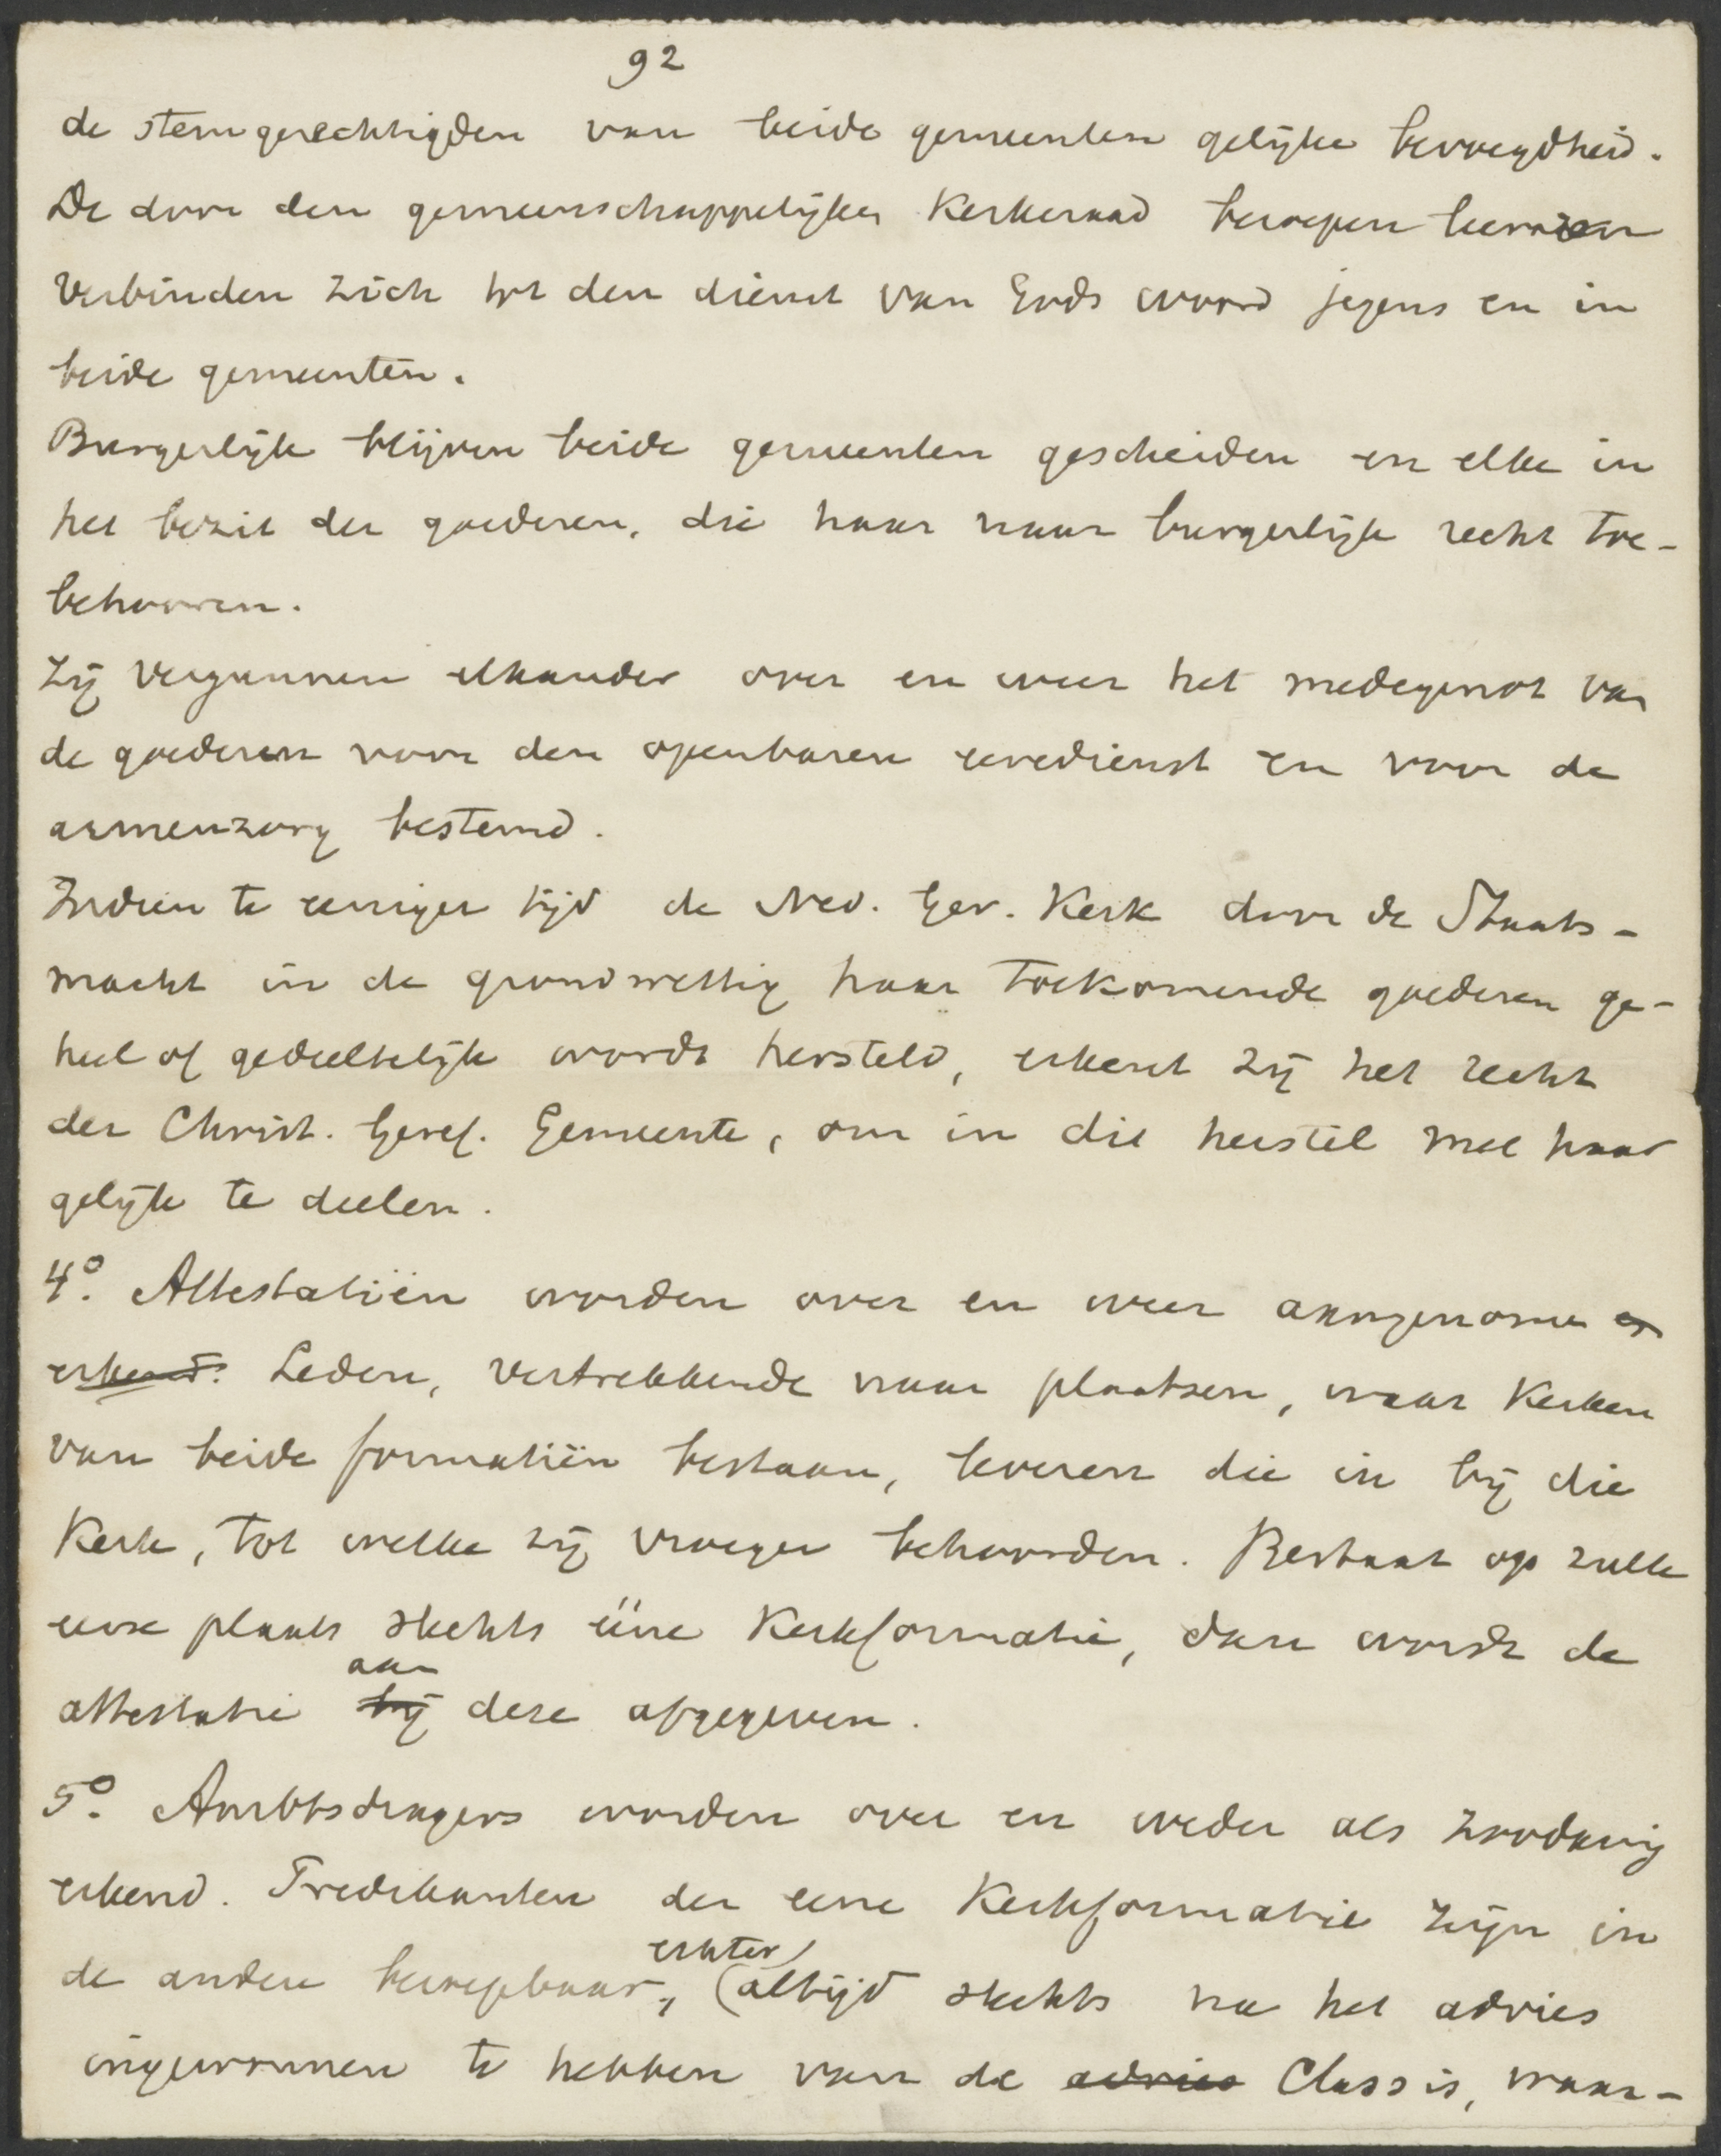 92
de stemgerechtigden van beide gemeenten gelijke bevoegdheid.
De door den gemeenschappelijken Kerkeraad beroepen leeraren
verbinden zich tot den dienst van Gods woord jegens en in
beide gemeenten.
Burgerlijk blijven beide gemeenten gescheiden en elke in
het bezit der goederen, die haar naar burgerlijk recht toe-
behooren.
Zij vergunnen elkander over en weer het medegenot van
de goederen voor den openbaren eeredienst en voor de
armenzorg bestemd.
Indien te eeniger tijd de Ned. Ger. Kerk door de Staats-
macht in de grondwettig haar toekomende goederen ge-
heel of gedeeltelijk wordt hersteld, erkent zij het recht
der Christ. Geref. Gemeente, om in die herstel met haar
gelijk te deelen.
4º. Attestatiën worden over en weer aangenomen en
erkend. Leden, vertrekkende naar plaatsen, waar Kerken
van beide formatiën bestaan, leveren die in bij die
Kerk, tot welke zij vroeger behoorden. Bestaat op zulk
eene plaats slechts ééne Kerkformatie, dan wordt de
aan
attestatie bij deze afgegeven.
5º. Ambtsdragers worden over en weder als zoodanig
erkend. Predikanten der eene Kerkformatie zijn in
echter
de andere beroepbaar, (altijd slechts na het advies
ingewonnen te hebben van de advies Classis, waar-